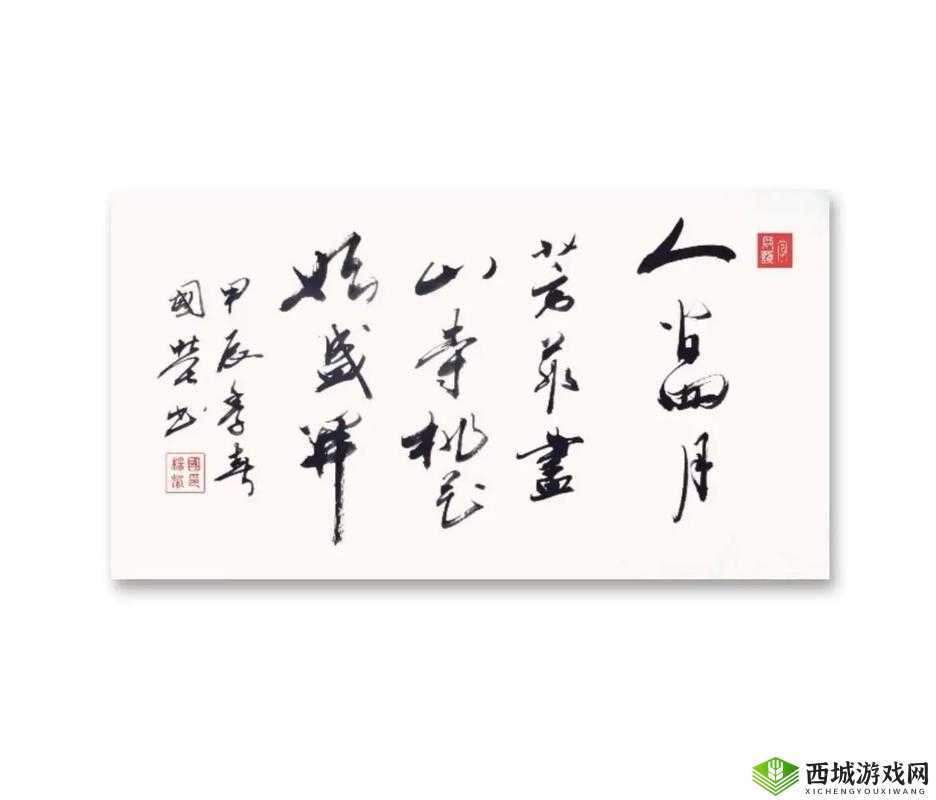 人間四月
芳菲盡
山寺桃花
始盛開
甲辰季春
國榮书
西城游戏网
XICHENGYOUXIWANG